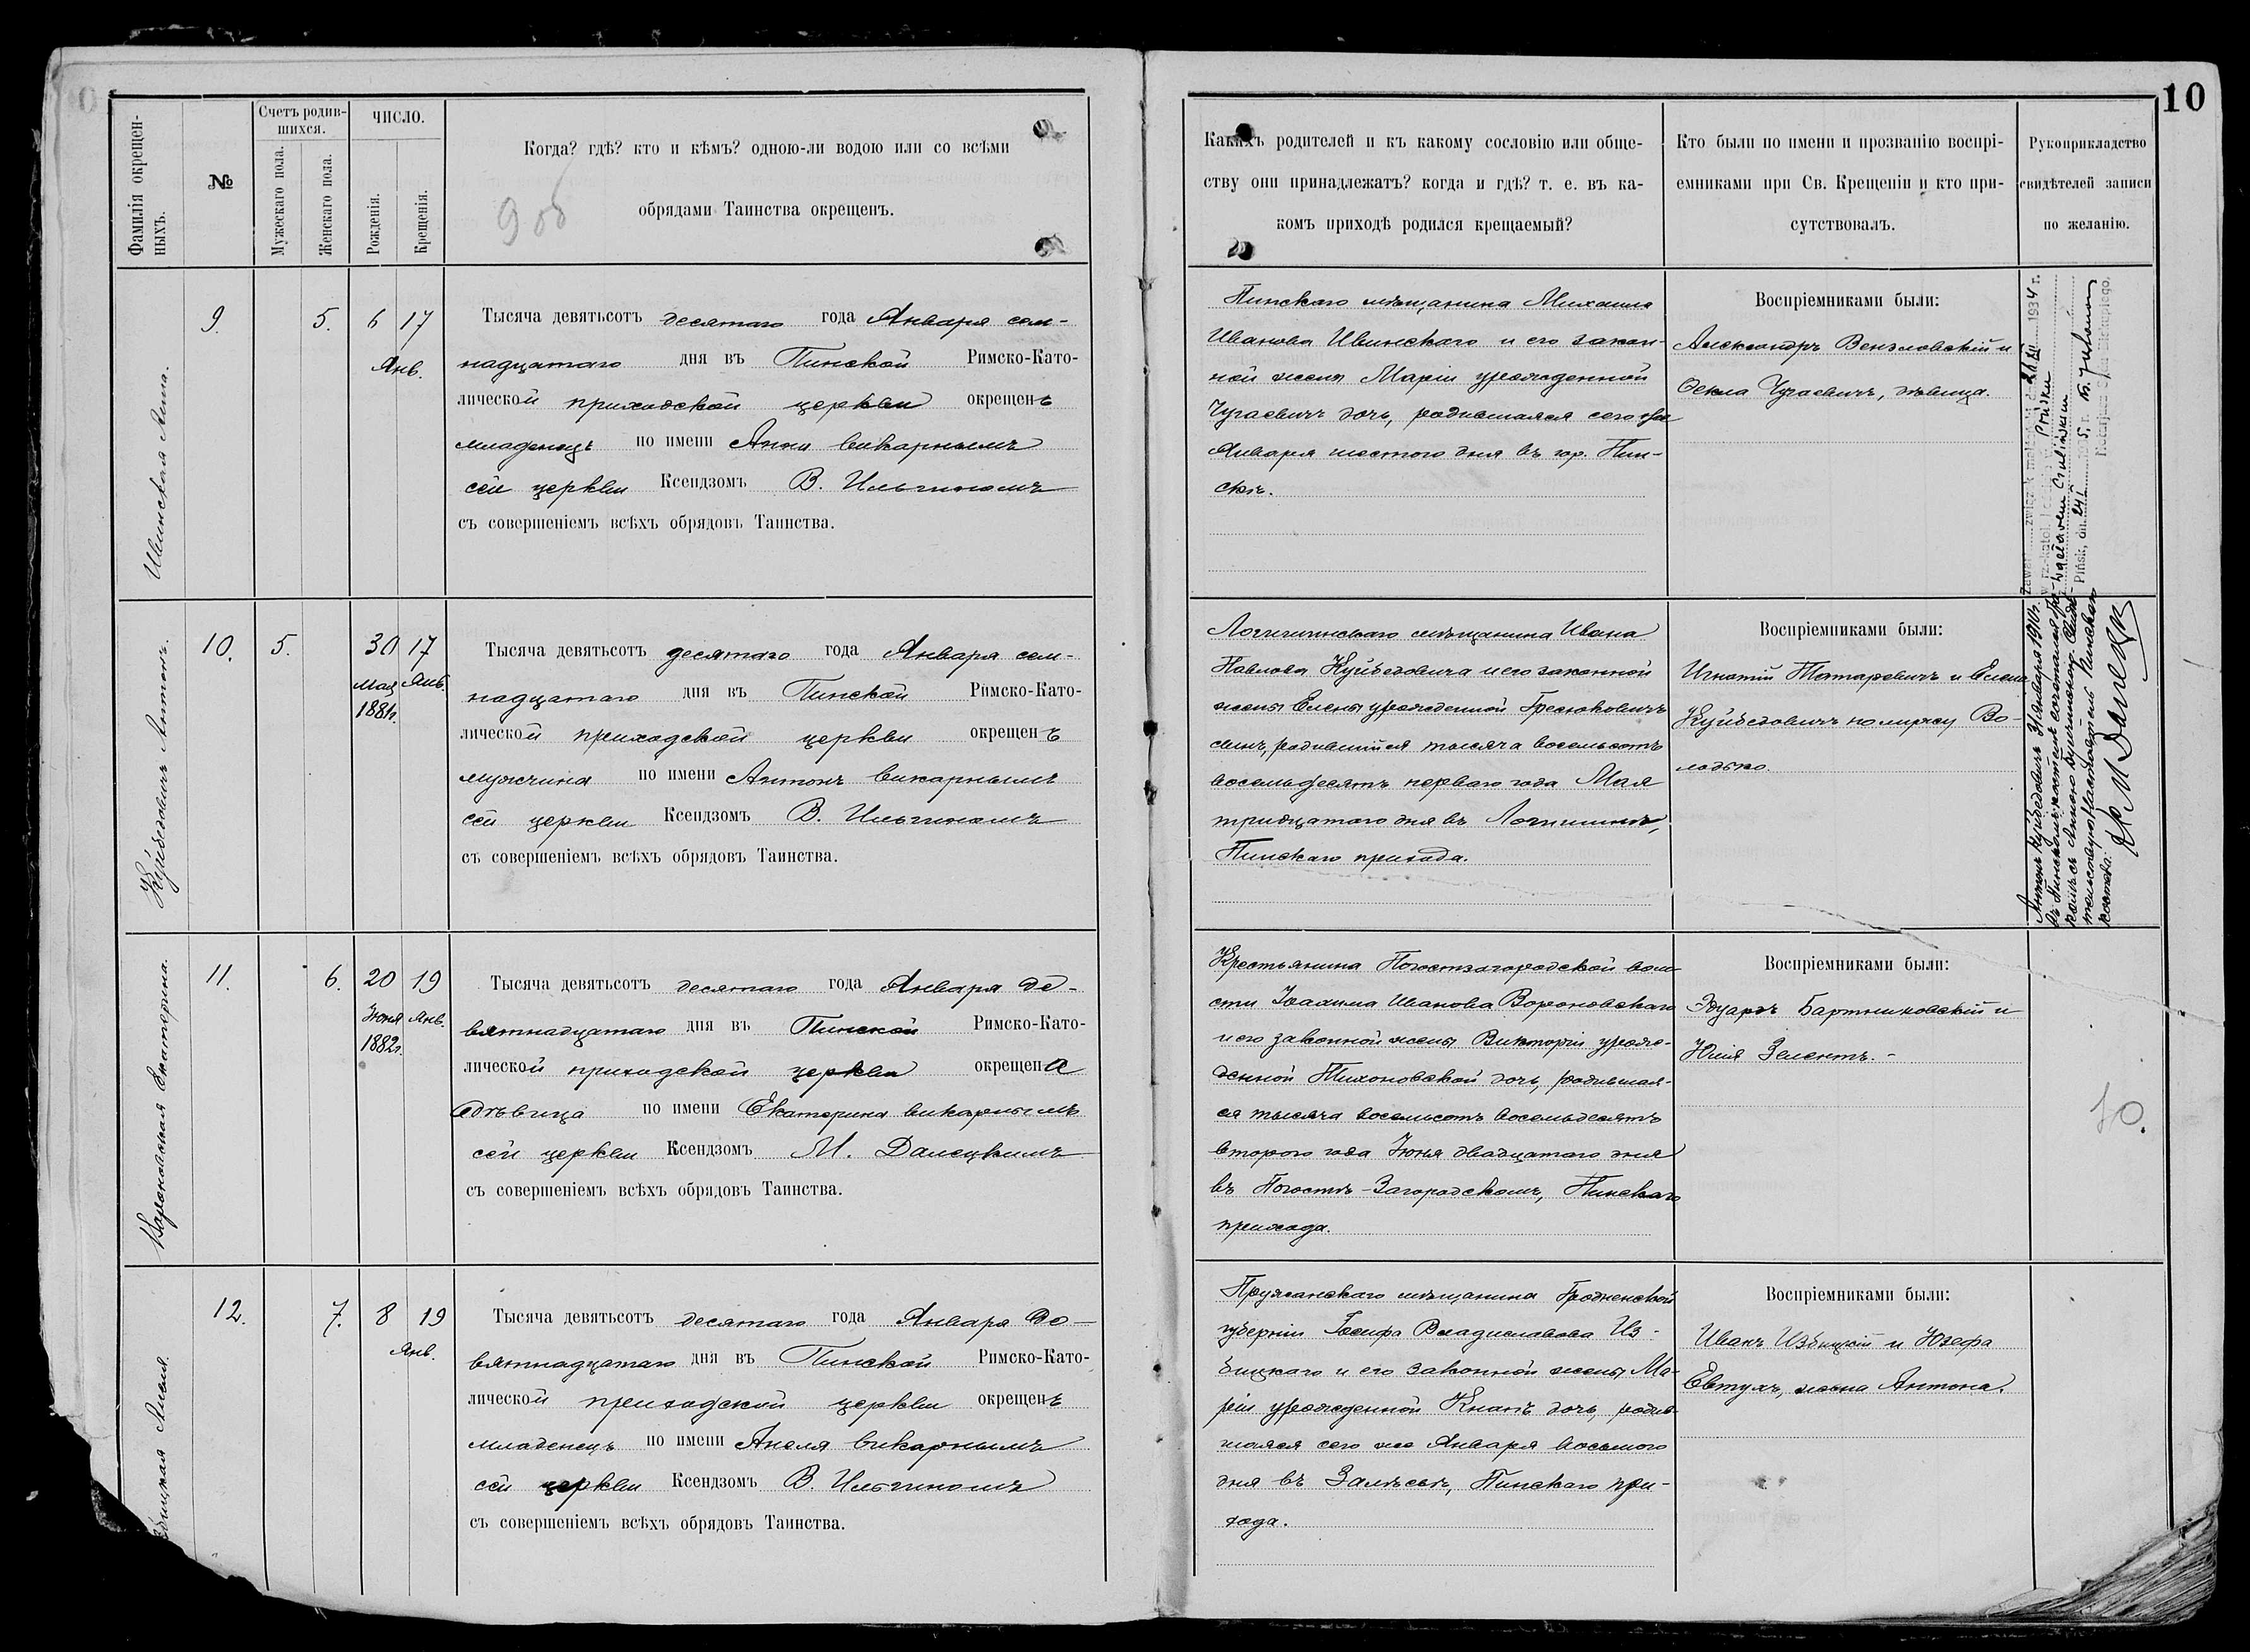 10
Фамилія окрещен-
ныхъ.
№
Счетъ родив-
шихся.
Мужескаго пола.
Женскаго пола.
ЧИСЛО.
Рожденія.
Крещенія.
Когда? гдѣ? кто и кѣмъ? одною-ли водою или со всѣми
обрядами Таинства окрещенъ.
9 об
Какихъ родителей и къ какому сословію или обще-
ству они принадлежатъ? когда и гдѣ? т. е. въ ка-
комъ приходѣ родился крещаемый?
Кто были по имени и прозванію воспрі-
емниками при Св. Крещеніи и кто при-
сутствовалъ.
Рукоприкладство
свидѣтелей записи
по желанію.
Ивинская Анна.
9.
5.
6 17
Янв.
Тысяча девятьсотъ десятаго года Января сем-
надцатаго дня въ Пинской Римско-Като-
лической приходской церкви окрещенъ
младенецъ по имени Анна викарнымъ
сей церкви Ксендзомъ В. Ильгиномъ
съ совершеніемъ всѣхъ обрядовъ Таинства.
Пинскаго мѣщанина Михаила
Иванова Ивинскаго и его закон-
ной жены Маріи урожденной
Чугаевичъ дочь, родившаяся сего же
Января шестого дня въ гор. Пин-
скѣ.
Воспріемниками были:
Александръ Венгловскій и
Фекла Чугаевичъ, дѣвица.
1934 r.
Pińsk, dn. 24
Куйбедовичъ Антонъ.
10.
5.
30 17
Мая Янв.
1881г.
Тысяча девятьсотъ десятаго года Января сем-
надцатаго дня въ Пинской Римско-Като-
лической приходской церкви окрещенъ
мужчина по имени Антонъ викарнымъ
сей церкви Ксендзомъ В. Ильгиномъ
съ совершеніемъ всѣхъ обрядовъ Таинства.
Логишинскаго мѣщанина Ивана
Павлова Куйбедовича и его законной
жены Елены урожденной Гресюковичъ
сынъ, родившійся тысяча восемьсотъ
восемьдесятъ перваго года Мая
тридцатаго дня въ Логишинѣ,
Пинскаго прихода.
Воспріемниками были:
Игнатій Татаревичъ и Елена
Куйбедовичъ по мужу Во-
лодько.
Антонъ Куйбедовичъ Января 1910г.
костела:
Вороновская Екатерина.
11.
6.
20 19
Іюня Янв.
1882г.
Тысяча девятьсотъ десятаго года Января де-
вятнадцатаго дня въ Пинской Римско-Като-
лической приходской церкви окрещена
дѣвица по имени Екатерина викарнымъ
сей церкви Ксендзомъ М. Далецкимъ
съ совершеніемъ всѣхъ обрядовъ Таинства.
Крестьянина Погостзагородской воло-
сти Іоахима Иванова Вороновскаго
и его законной жены Викторіи урож-
денной Тихоновской дочь, родившая-
ся тысяча восемьсотъ восемьдесятъ
второго года Іюня двадцатаго дня
въ Погостѣ-Загородскомъ, Пинскаго
прихода.
Воспріемниками были:
Эдуардъ Бартниковскій и
Юлія Зелентъ.
10.
Избицкая Анеля.
12.
7.
8 19
Янв.
Тысяча девятьсотъ десятаго года Января де-
вятнадцатаго дня въ Пинской Римско-Като-
лической приходской церкви окрещенъ
младенецъ по имени Анеля викарнымъ
сей церкви Ксендзомъ В. Ильгиномъ
съ совершеніемъ всѣхъ обрядовъ Таинства.
Пружанскаго мѣщанина Гродненской
губерніи Іосифа Владиславова Из-
бицкаго и его законной жены Ма-
ріи урожденной Кнапъ дочь, родив-
шаяся сего же Января восьмого
дня въ Залѣсьѣ, Пинскаго при-
хода.
Воспріемниками были:
Иванъ Избицкій и Юзефа
Евтухъ, жена Антона.